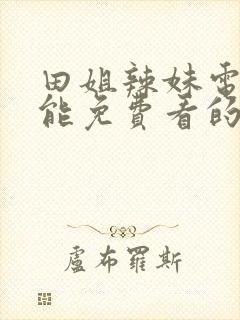 田姐辣妹電
能免費看的
盧布羅斯